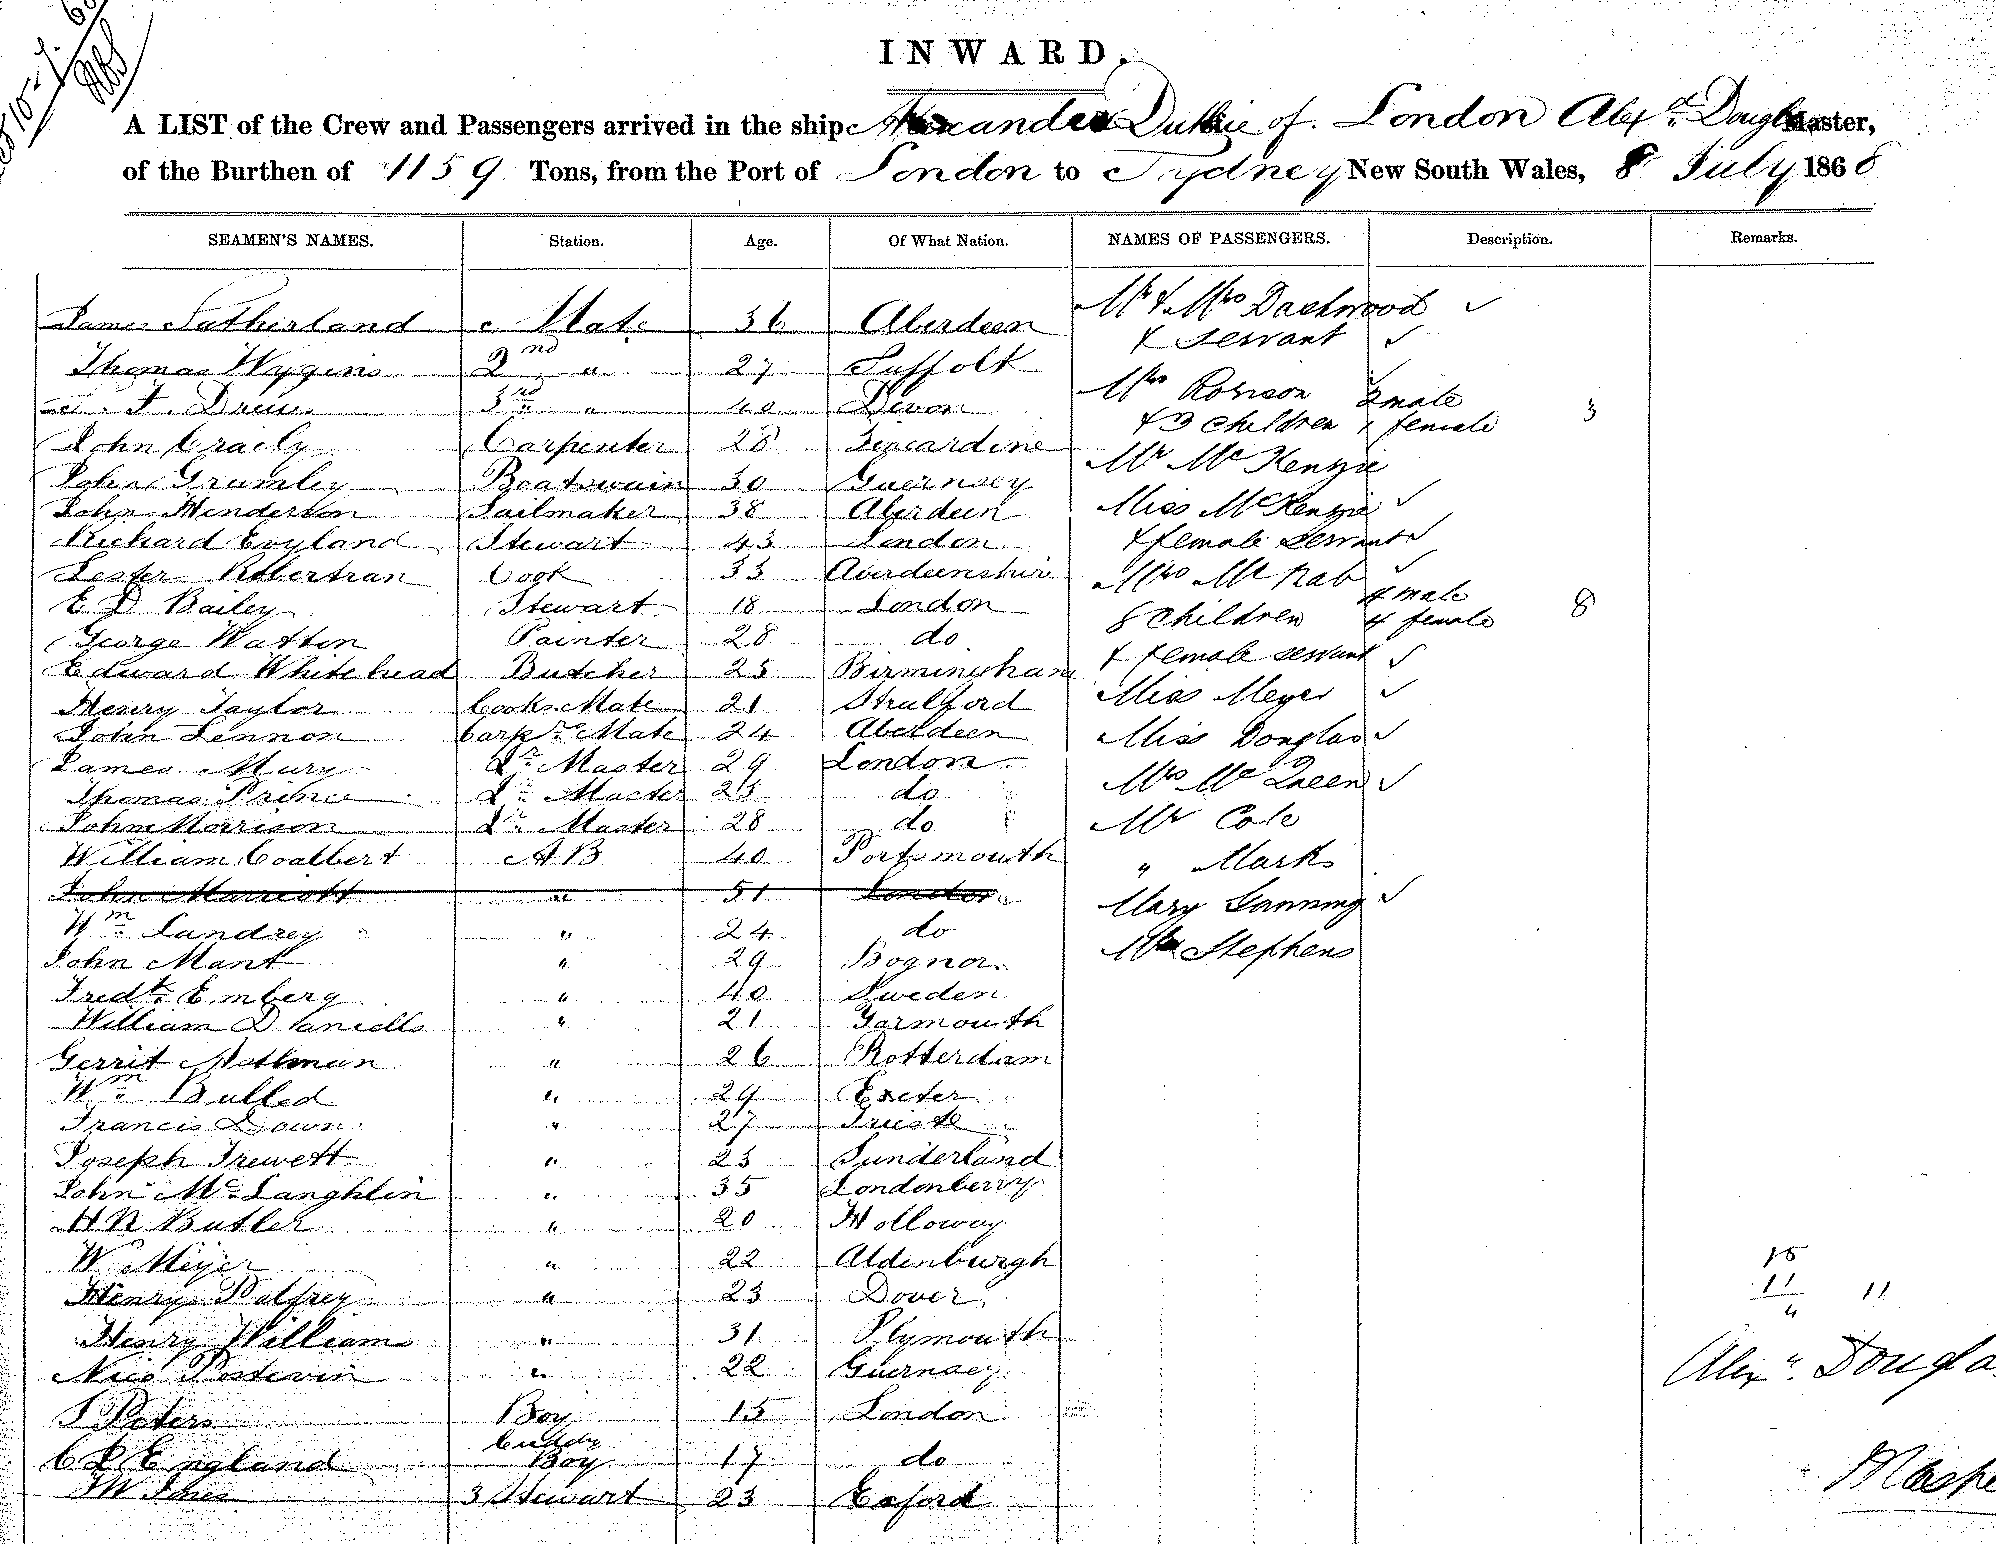 INWARD.
A LIST of the Crew and Passengers arrived in the ship Alexander Duthie of London Alexr. Douglas Master,
of the Burthen of 1159 Tons, from the Port of London to Sydney New South Wales, 8 July 1868
SEAMEN'S NAMES. Station. Age. Of What Nation. NAMES OF PASSENGERS. Description. Remarks.
James Sutherland Mate 36 Aberdeen
Thomas Wygins 2nd " 27 Suffolk
J. Drew 3rd " 40 Devon
John Craily Carpenter 28 Kincardine
John Grumley Boatswain 30 Guernsey
John Henderson Sailmaker 38 Aberdeen
Richard England Stewart 43 London
Lester Robertran Cook 33 Aberdeenshire
E D Bailey Stewart 18 London
George Watton Painter 28 do
Edward Whitehead Butcher 25 Birmingham
Henry Taylor Cooks Mate 21 Stratford
John Lennon Carpr. Mate 24 Aberdeen
James Mury Qr. Master 29 London
Thomas Prince Qr. Master 25 do
John Morrison Qr. Master 28 do
William Coalbert AB 40 Portsmouth
John Marriott " 51 London
Wm Landrey " 24 do
John Mant " 29 Bognor
Fredk. Emberg " 40 Sweden
William Daniells " 21 Yarmouth
Gerrit Mottman " 26 Rotterdam
Wm Bulled " 29 Exeter
Francis Down " 27 Trieste
Joseph Trewett " 23 Sunderland
John McLanghlin " 35 Londonderry
H B Butler " 20 Holloway
W Meyer " 22 Aldenburgh
Henry Palfrey " 23 Dover
Henry Williams " 31 Plymouth
Nico Postevin " 22 Guernsey
P Peters Boy 15 London
C L England Cuddy Boy 17 do
W Ines 3 Stewart 23 Exford
Mr & Mrs Dashwood ✓
& Servant ✓
Mrs Robison 2 male
& 3 children 1 female 3
Mr McKenzie
Miss McKenzie ✓
& female Servant ✓
Mrs McRab ✓ 4 male
8 children 4 female 8
& female servant ✓
Miss Meyer ✓
Miss Douglas ✓
Mrs McQueen ✓
Mr Cole
" Mark
Mary Lanning ✓
Mr Stephens
15
11 11
4
Alexr. Dougla